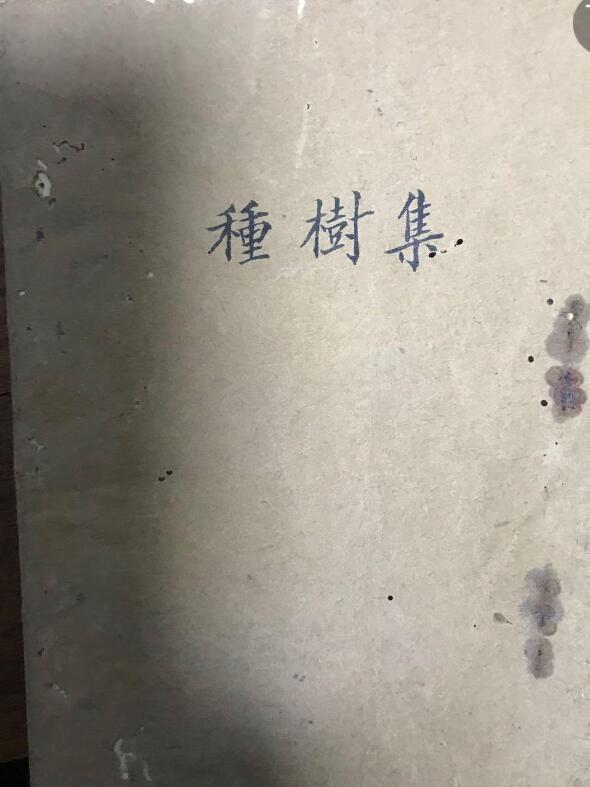 種樹集